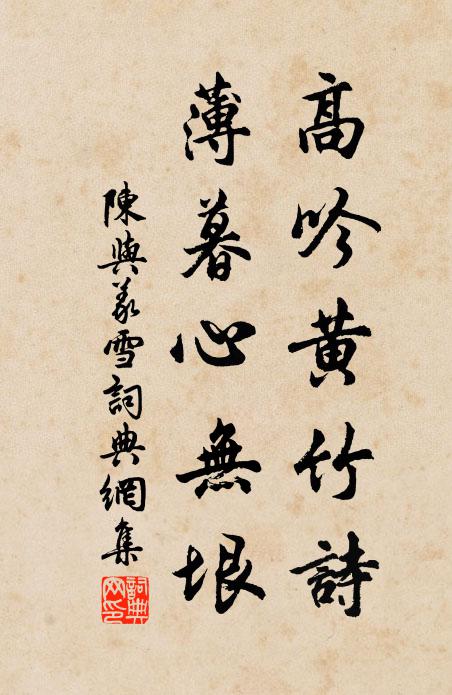 高吟黄竹詩
薄暮心無垠
陳與義雪詞典網集
詞典網印